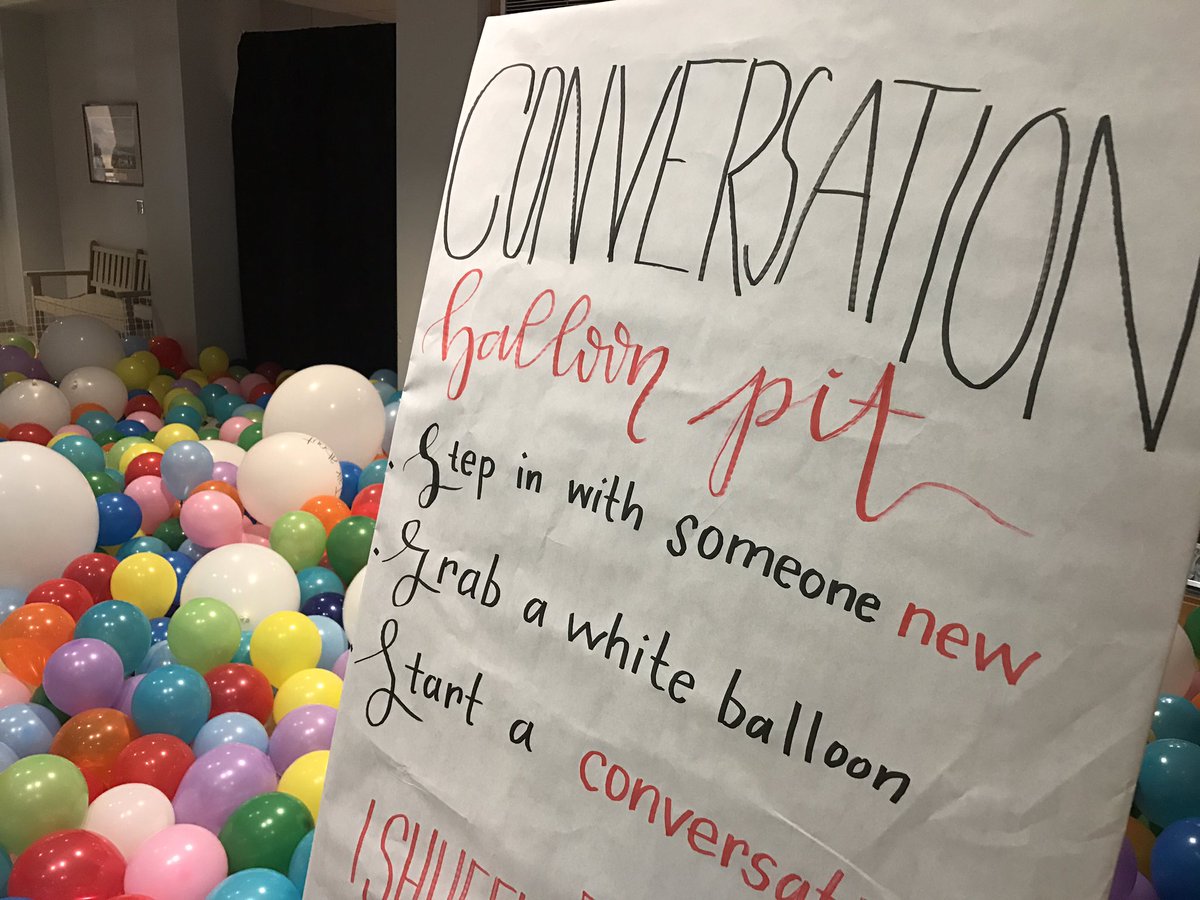 CONVERSATION
balloon pit
· Step in with someone new
· Grab a white balloon
· Start a conversat